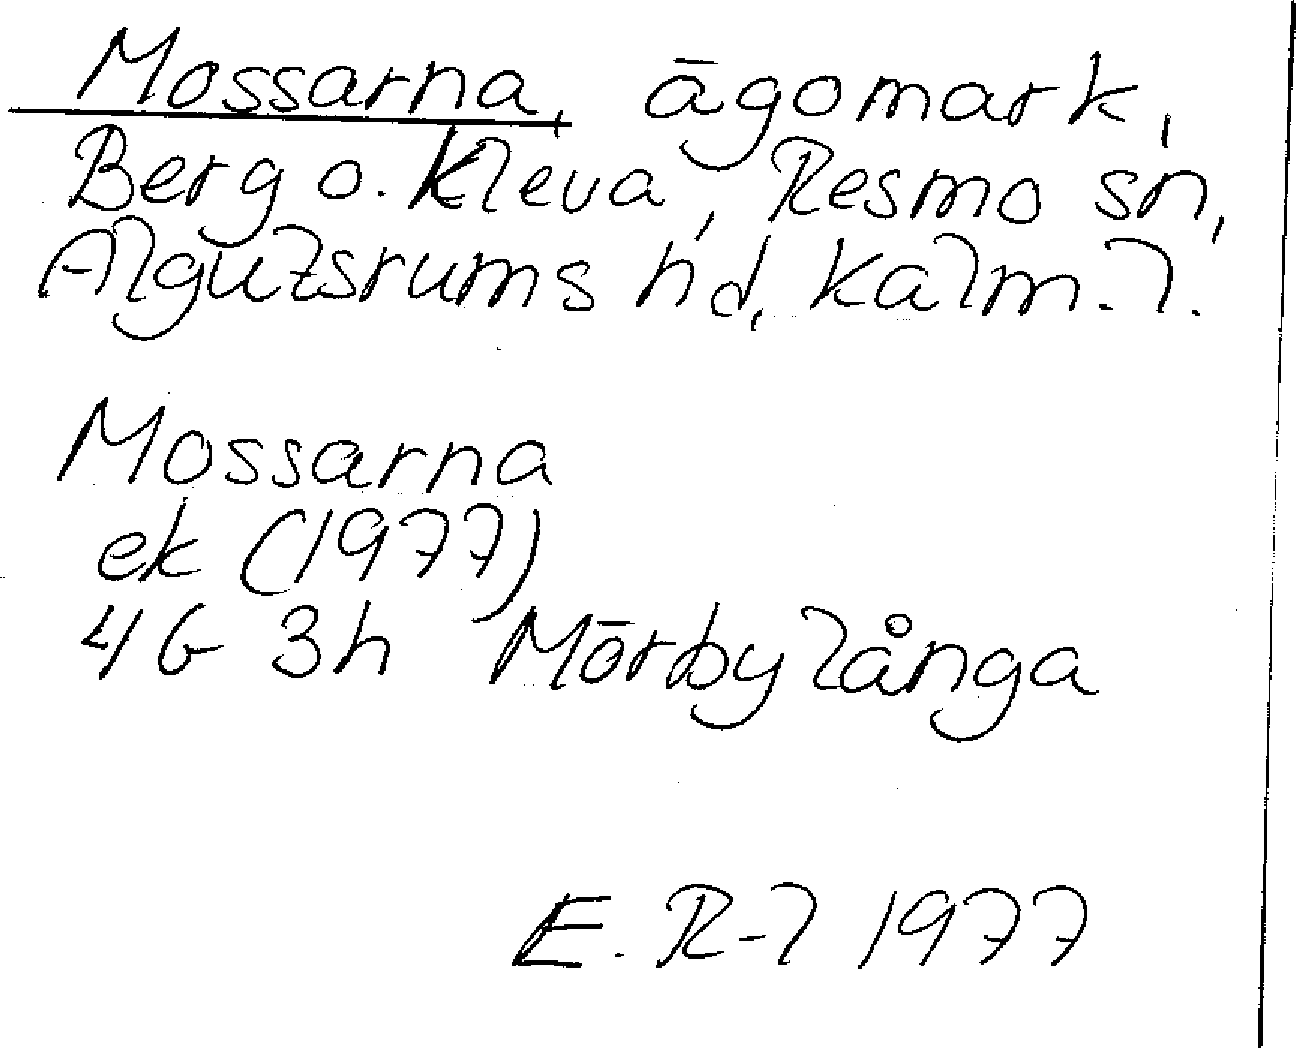 Mossarna, ägomark,
Berg o. Kleva, Resmo sn,
Algutsrums hd, Kalm. l.
Mossarna
ek (1977)
4G 3h Mörbylånga
E. R-l 1977